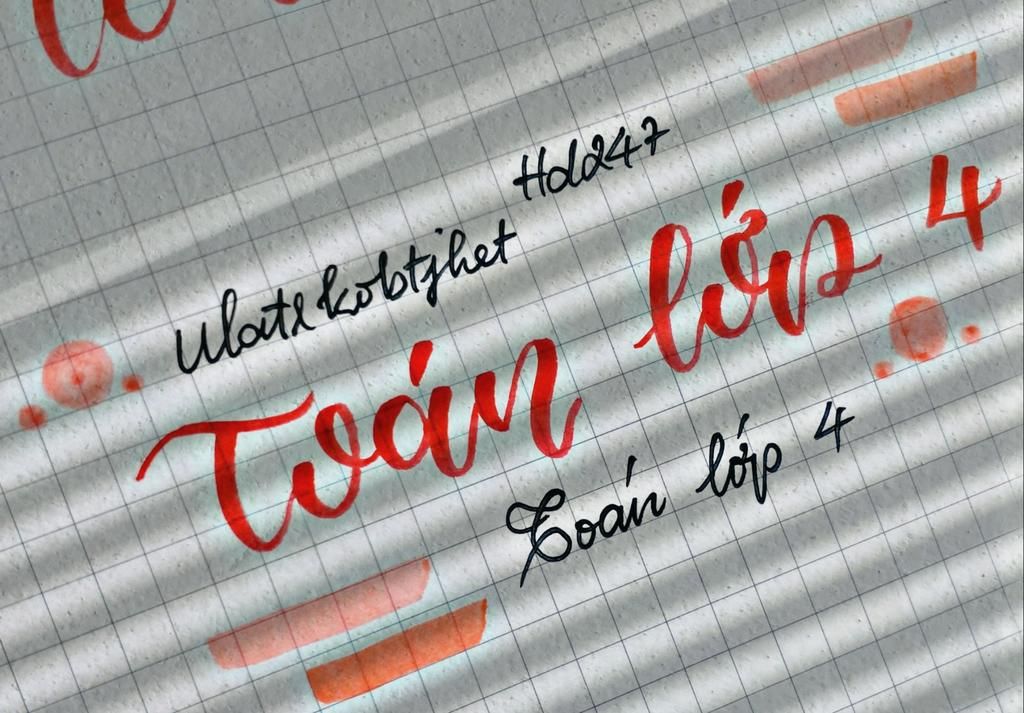 Hdd247
Toán lớp 4
Toán lớp 4